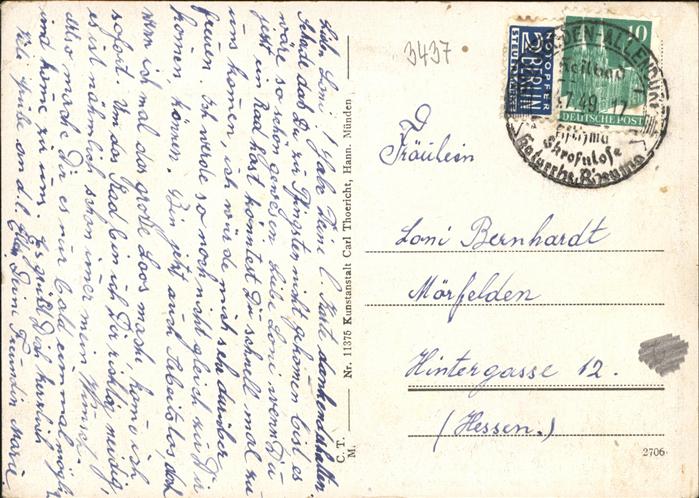 Liebe Loni! Habe Deine l. Karte dankend erhalten.
Schade das Du zu Pfingsten nicht gekommen bist es
wäre so schön gewesen. Liebe Loni wenn Du
jetzt ein Rad hast könntest Du schnell mal zu
uns kommen, ich würde mich sehr darüber
freuen. Ich werde so noch nicht gleich zu Dir
kommen können. Bin jetzt auch Arbeitslos, doch
wenn ich mal das große Loos mache, kome ich
sofort. Um das Rad bin ich Dir richtig neidig,
es ist nähmlich schon immer mein Wunsch.
Also mache Dir es nur bald einmal möglich
und kome zu uns. Es grüßt Dich herzlich
Viele Grüße an d. l. Eltern Deine Freundin Maria
C. T.
M.
Nr. 11375 Kunstanstalt Carl Thoericht, Hann. Münden
3437
NOTOPFER
2 BERLIN
STEUERMARKE
10
DEUTSCHE POST
BADEN-ALLENDORF
Heilbad
7.49
17
Asthma
Skrofulose
Katarrhe, Rheuma
Fräulein
Loni Bernhardt
Mörfelden
Hintergasse 12.
(Hessen.)
2706